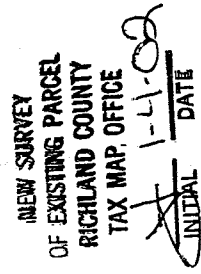 NEW SURVEY
OF EXISTING PARCEL
RICHLAND COUNTY
TAX MAP, OFFICE
1-4-02
INITIAL DATE